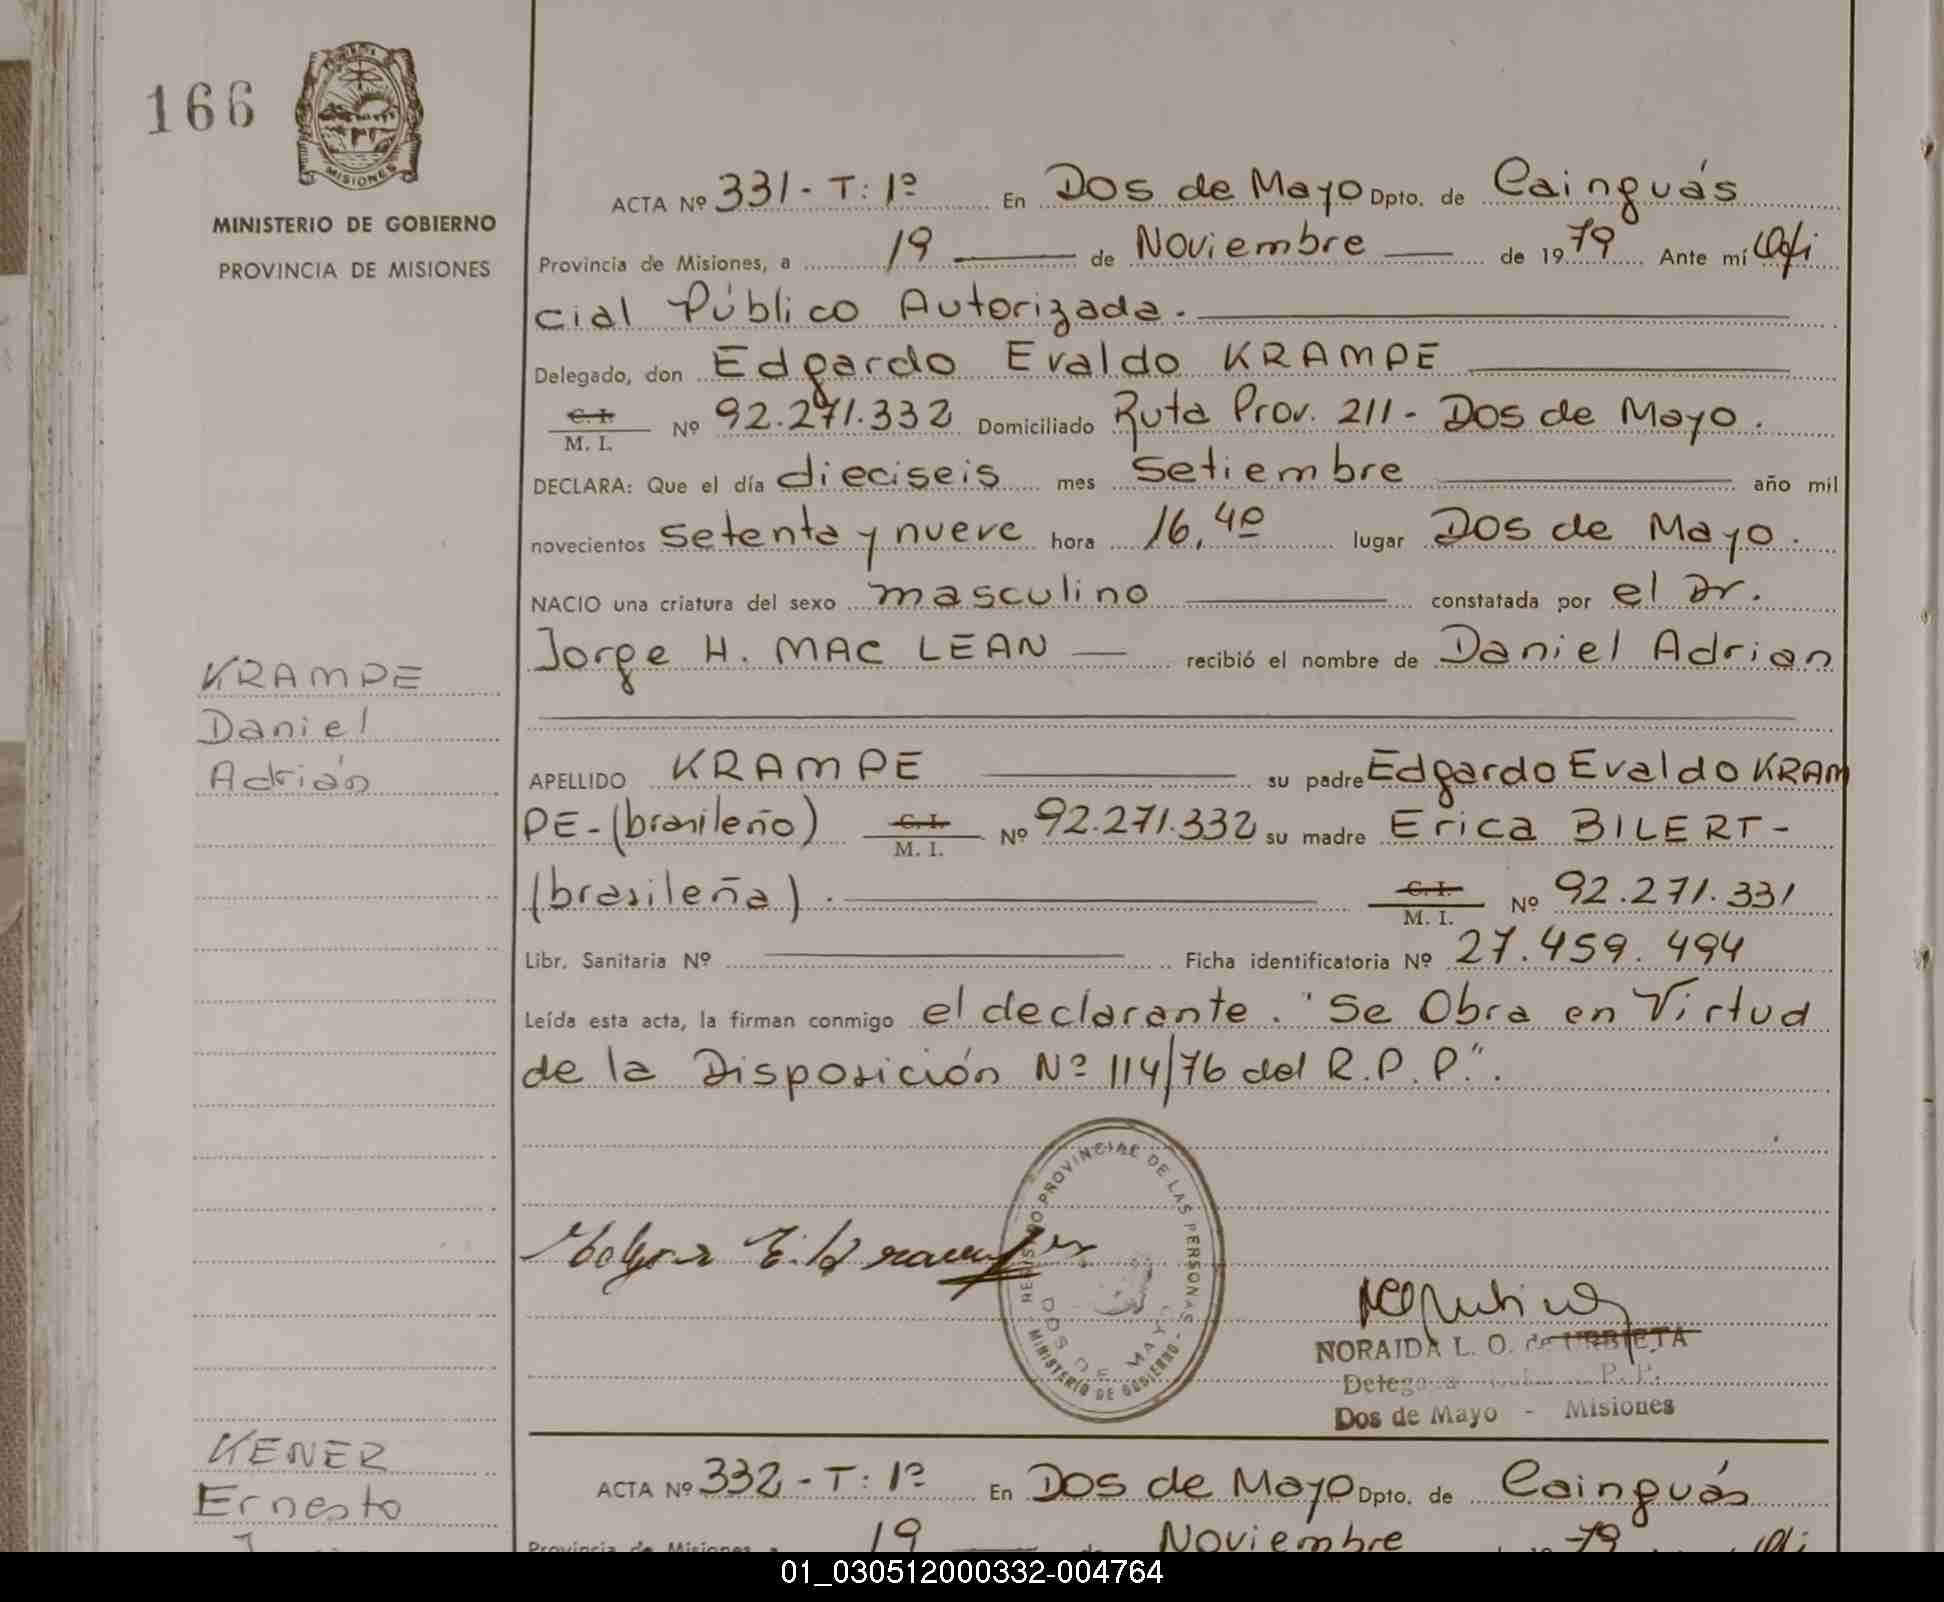 166
MISIONES
MINISTERIO DE GOBIERNO
PROVINCIA DE MISIONES
ACTA Nº 331 - T: 1º En Dos de Mayo Dpto. de Cainguás
Provincia de Misiones, a 19 de Noviembre de 1979 Ante mí Ofi
cial Público Autorizada.
Delegado, don Edgardo Evaldo KRAMPE
C. I.
M. I. Nº 92.271.332 Domiciliado Ruta Prov. 211 - Dos de Mayo.
DECLARA: Que el día dieciseis mes Setiembre año mil
novecientos setenta y nueve hora 16,40 lugar Dos de Mayo.
NACIO una criatura del sexo masculino constatada por el Dr.
Jorge H. MAC LEAN recibió el nombre de Daniel Adrian
KRAMPE
Daniel
Adrián
APELLIDO KRAMPE su padre Edgardo Evaldo KRAM
PE - (brasileño) C. I. M. I. Nº 92.271.332 su madre Erica BILERT -
(brasileña). C. I. M. I. Nº 92.271.331
Libr. Sanitaria Nº Ficha identificatoria Nº 27.459.494
Leída esta acta, la firman conmigo el declarante. "Se Obra en Virtud
de la Disposición Nº 114/76 del R.P.P.".
REGISTRO PROVINCIAL DE LAS PERSONAS
DOS DE MAYO
- MINISTERIO DE GOBIERNO -
NORAIDA L. O. de URBIETA
P. P.
Dos de Mayo - Misiones
KENER
Ernesto
ACTA Nº 332 - T: 1º En Dos de Mayo Dpto. de Cainguás
Provincia de Misiones, a 19 de Noviembre de 1979 Ofi
01_030512000332-004764